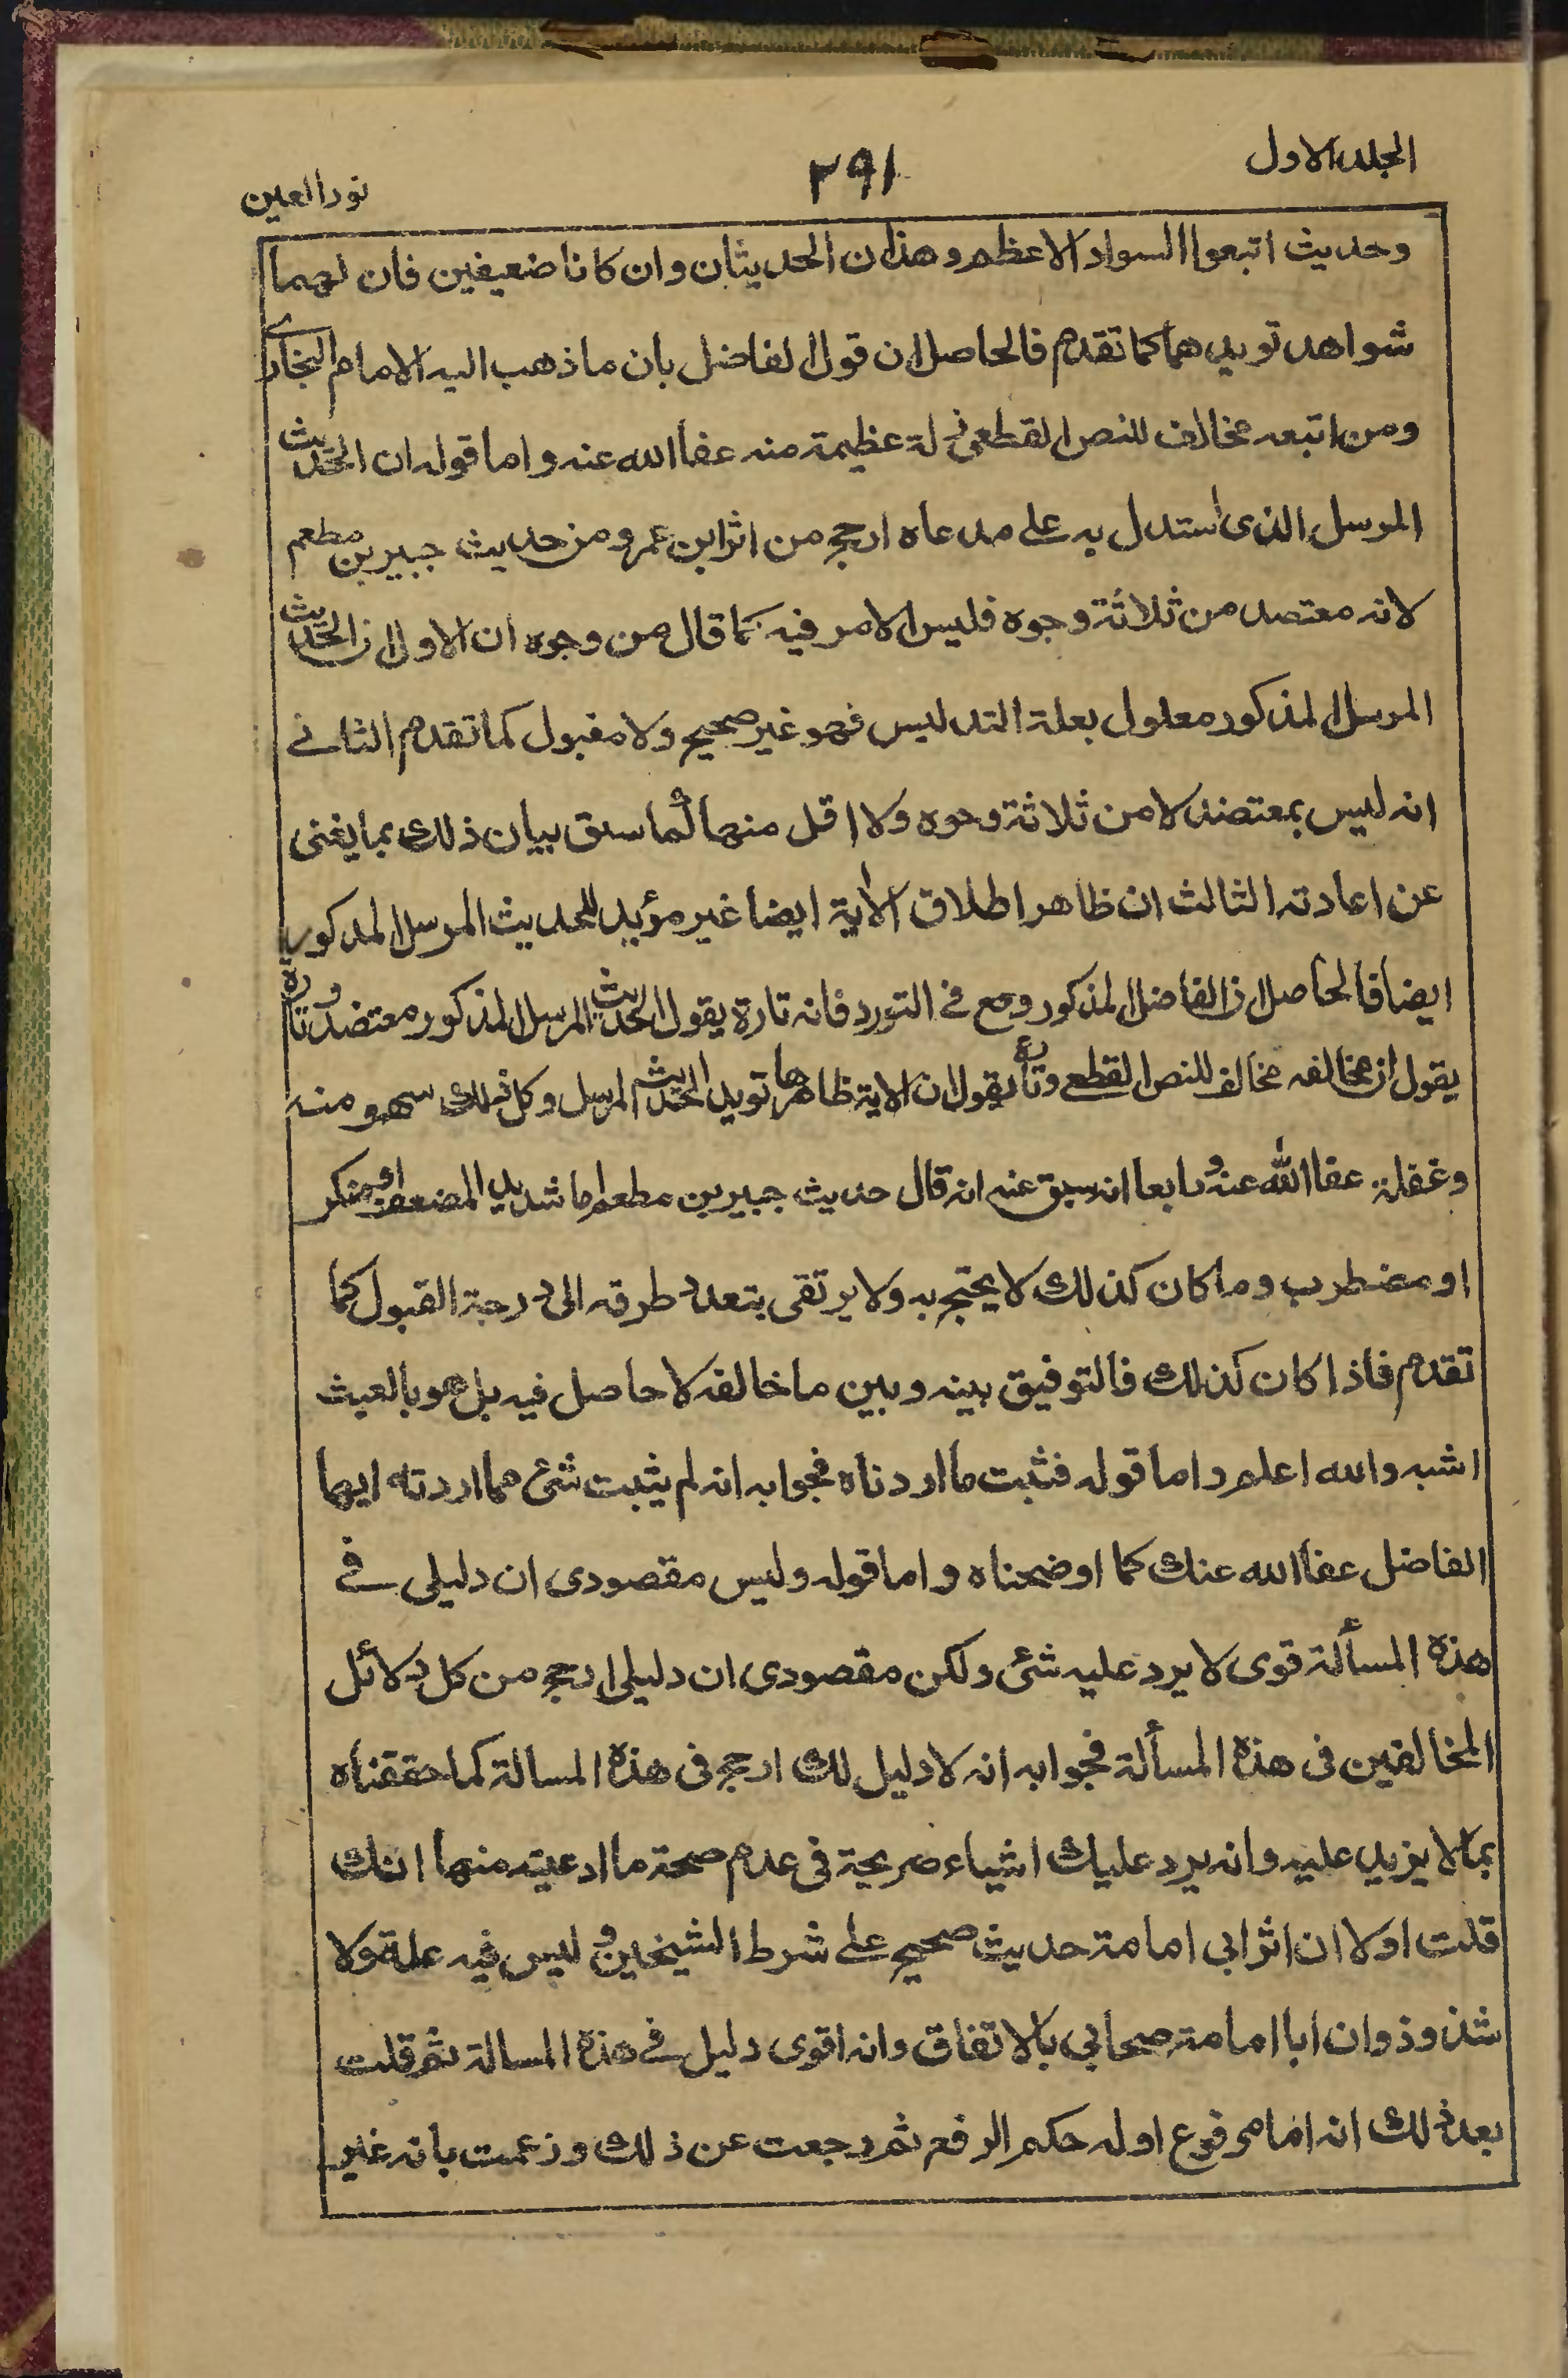 المجلد الاول
٢٩١
نور العين
وحديث اتبعوا السواد الاعظم وهذان الحديثان وان كانا ضعيفين فان لهما
شواهد تويدهما كما تقدم فالحاصل ان قول الفاضل بان ما ذهب اليه الامام البخاري
ومن اتبعه مخالف للنص القطعي زلة عظيمة منه عفا الله عنه واما قوله ان الحديث
المرسل الذى استدل به على مدعاه ارجح من اثر ابن عمر ومن حديث جبير بن مطعم
لانه معتصد من ثلاثة وجوه فليس الامر فيه كما قال من وجوه ان الاول ان الحديث
المرسل المذكور معلول بعلة التدليس فهو غير صحيح ولا مقبول كما تقدم الثاني
انه ليس بمعتضد لا من ثلاثة وجوه ولا اقل منها لما سبق بيان ذلك بما يغنى
عن اعادته الثالث ان ظاهر اطلاق الآية ايضا غير مؤيد للحديث المرسل المذكور
ايضا فالحاصل ان الفاضل المذكور وقع في التورد فانه تارة يقول الحديث المرسل المذكور معتضد وتارة
يقول ان مخالفه مخالف للنص القطعي وتارة يقول ان الاية ظاهرها تويد الحديث المرسل وكل ذلك سهو منه
وغفلة عفا الله عنه ورابعا انه سبق عنه انه قال حديث جبير بن مطعم اما شديد الضعف او منكر
او مضطرب وما كان كذلك لا يحتج به ولا يرتقى بتعدد طرقه الى درجة القبول كما
تقدم فاذا كان كذلك فالتوفيق بينه وبين ما خالفه لا حاصل فيه بل هو بالعبث
اشبه والله اعلم واما قوله فثبت ما اردناه فجوابه انه لم يثبت شئ مما اردته ايها
الفاضل عفا الله عنك كما اوضحناه واما قوله وليس مقصودى ان دليلى في
هذه المسألة قوى لا يرد عليه شئ ولكن مقصودى ان دليلى ارجح من كل دلائل
المخالفين فى هذه المسألة فجوابه انه لا دليل لك ارجح فى هذه المسالة كما حققناه
بما لا يزيد عليه وانه يرد عليك اشياء صريحة فى عدم صحة ما ادعيته منها انك
قلت اولا ان اثر ابى امامة حديث صحيح على شرط الشيخين وليس فيه علة ولا
شذوذ وان ابا امامة صحابي بالاتفاق وانه اقوى دليل في هذه المسالة ثم قلت
بعد ذلك انه اما مرفوع او له حكم الرفع ثم رجعت عن ذلك وزعمت بانه غير